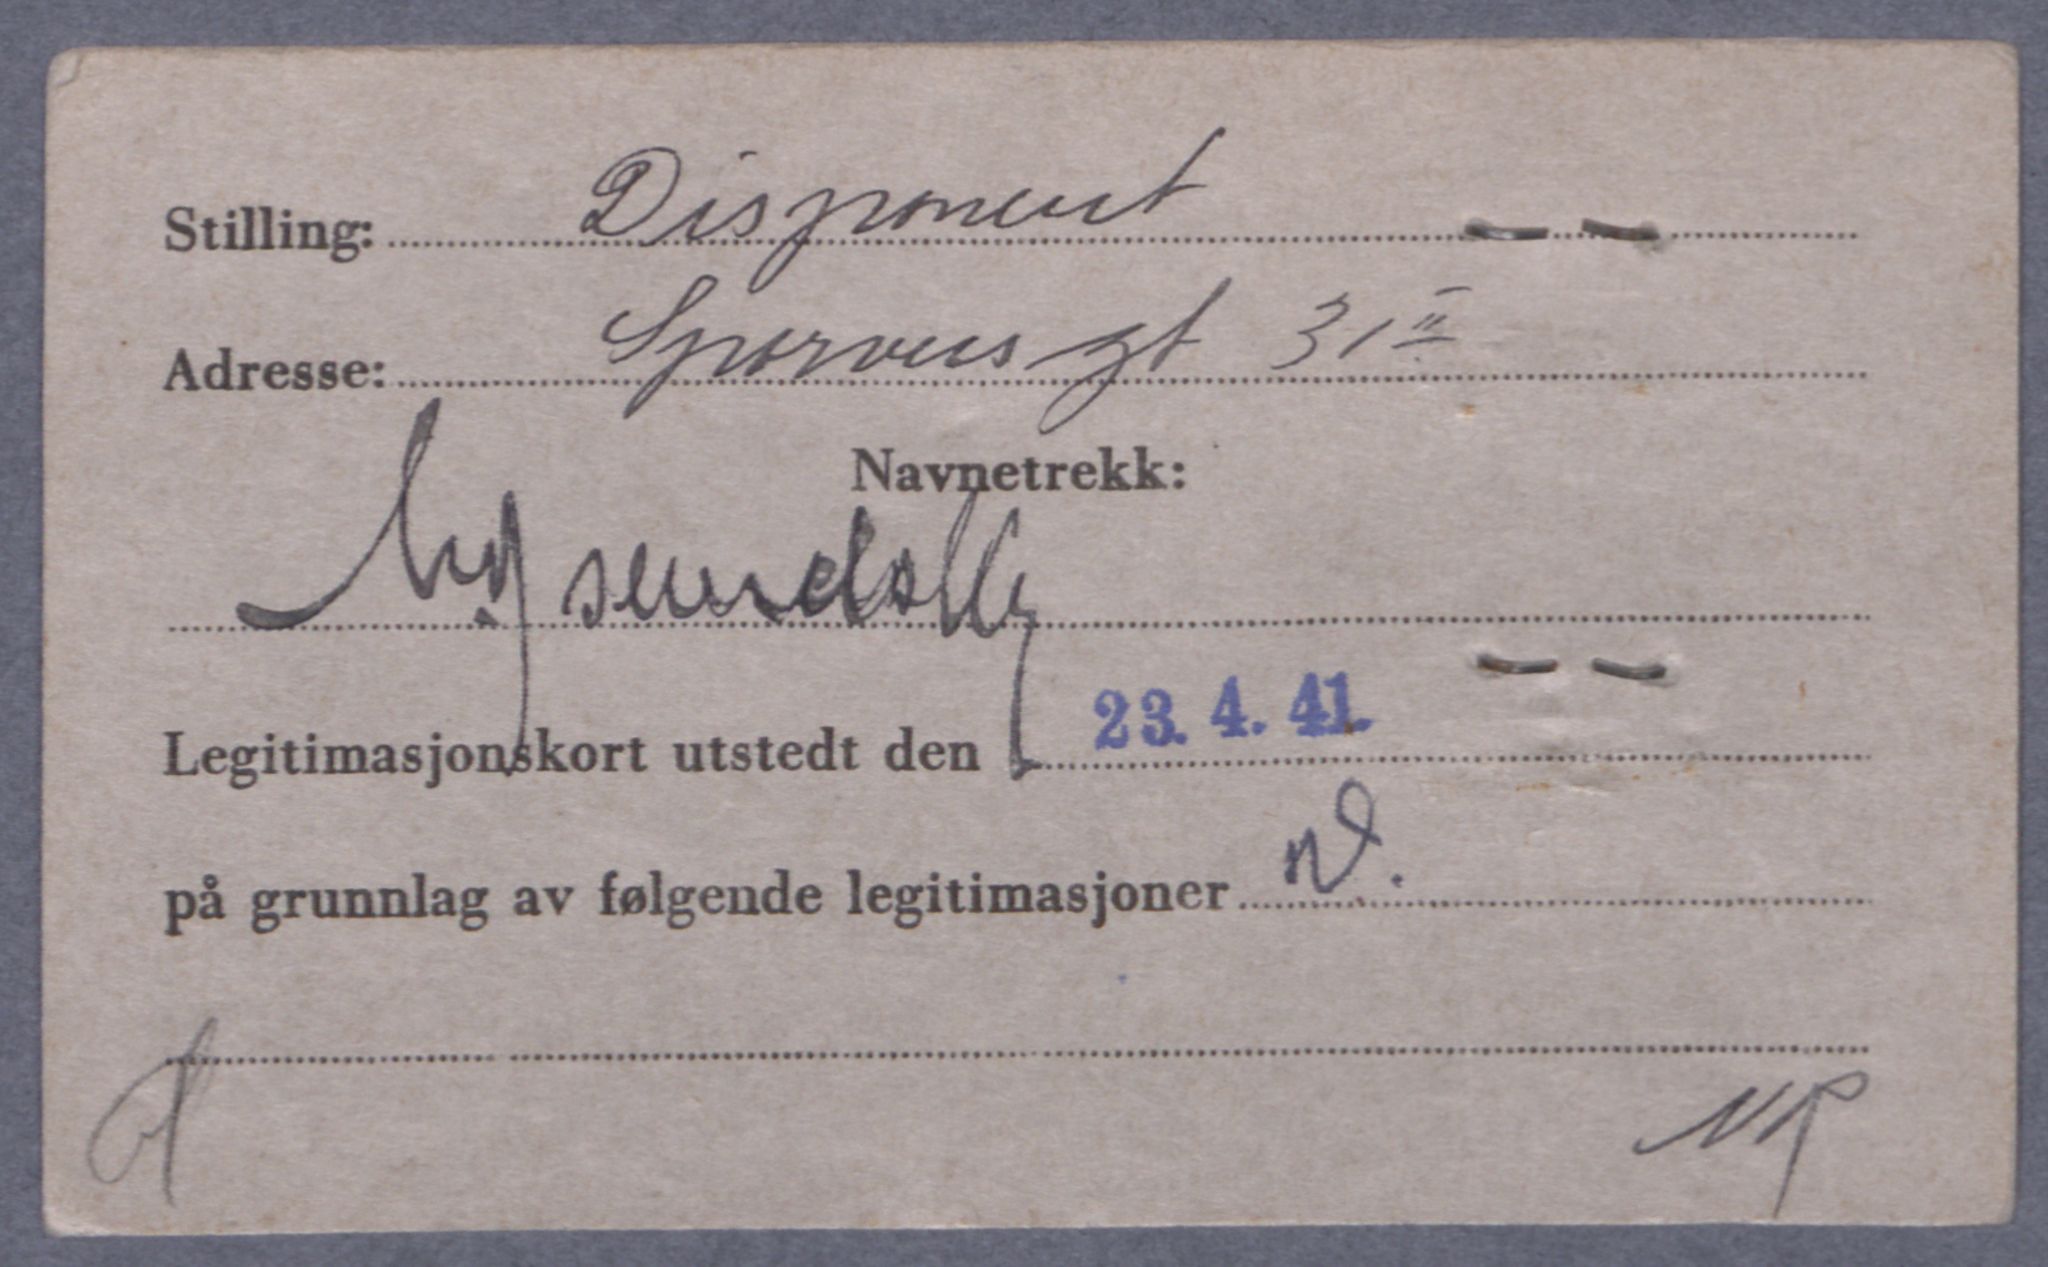 Stilling: Disponent
Adresse: Sporveisgt 31 II
Navnetrekk:
Legitimasjonskort utstedt den 23. 4. 41.
på grunnlag av følgende legitimasjoner